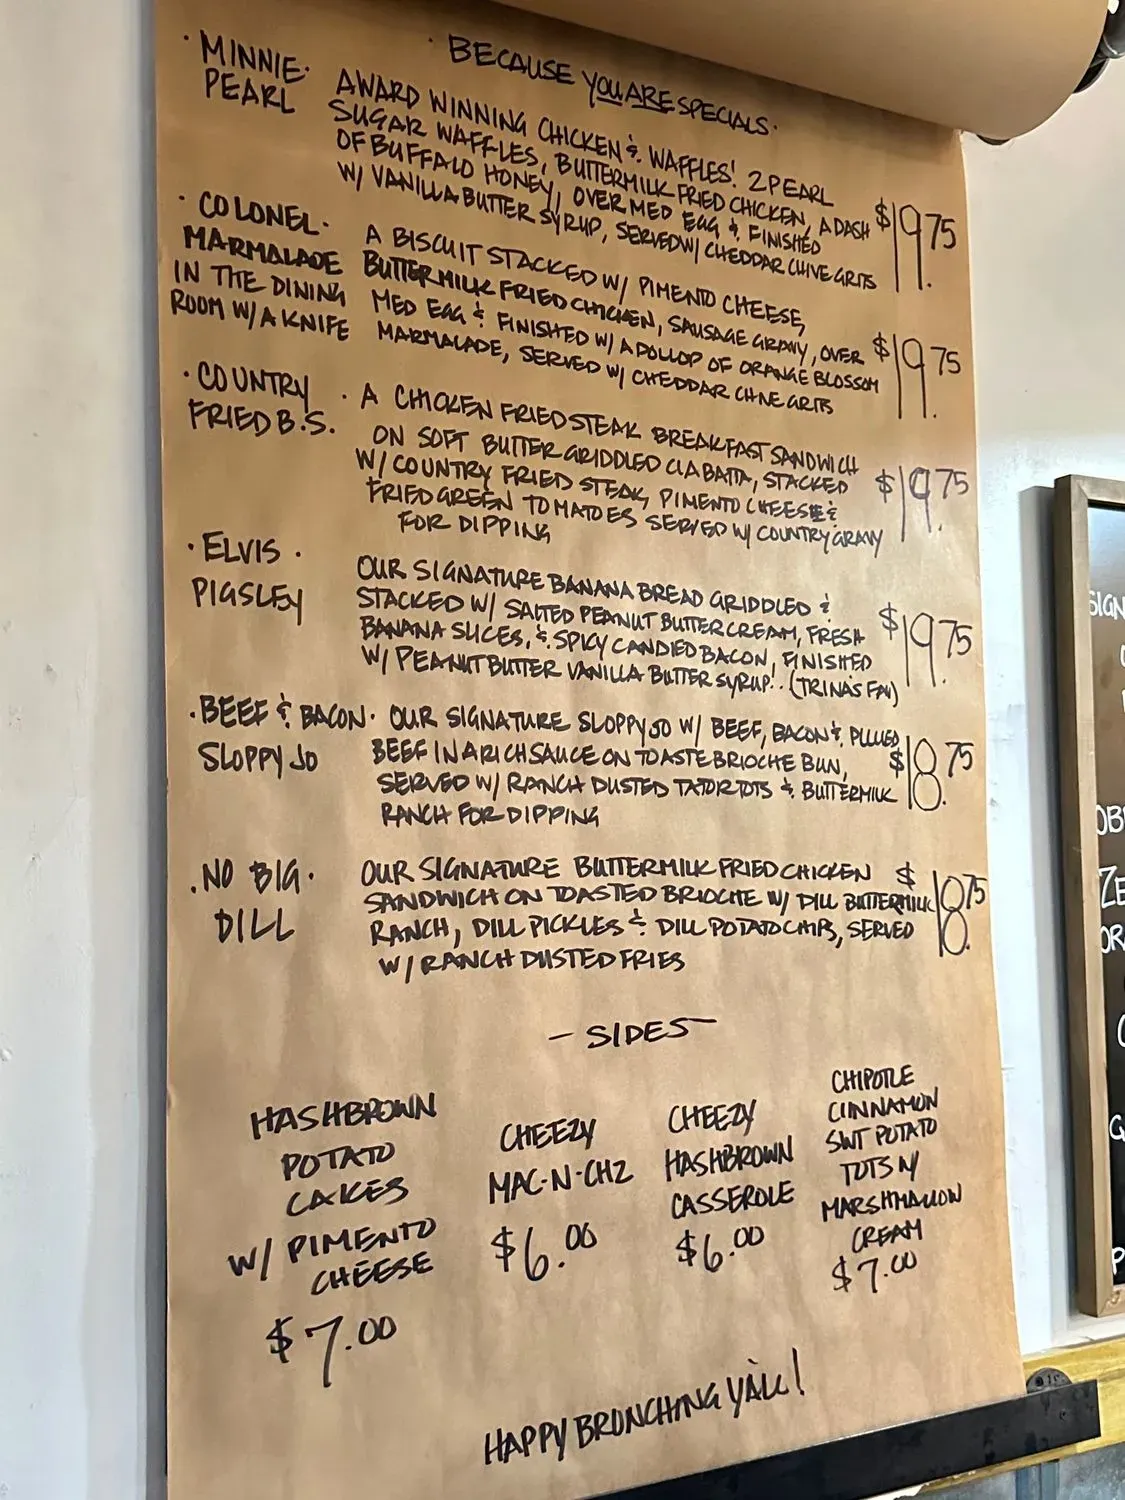 · BECAUSE YOU ARE SPECIALS ·
· MINNIE ·
PEARL
AWARD WINNING CHICKEN & WAFFLES! 2 PEARL
SUGAR WAFFLES, BUTTERMILK FRIED CHICKEN, A DASH
OF BUFFALO HONEY, OVER MED EGG & FINISHED
W/ VANILLA BUTTER SYRUP, SERVED W/ CHEDDAR CHIVE GRITS
$19.75
· COLONEL ·
MARMALADE
IN THE DINING
ROOM W/ A KNIFE
A BISCUIT STACKED W/ PIMENTO CHEESE,
BUTTERMILK FRIED CHICKEN, SAUSAGE GRAVY, OVER
MED EGG & FINISHED W/ A DOLLOP OF ORANGE BLOSSOM
MARMALADE, SERVED W/ CHEDDAR CHIVE GRITS
$19.75
· COUNTRY ·
FRIED B.S.
A CHICKEN FRIED STEAK BREAKFAST SANDWICH
ON SOFT BUTTER GRIDDLED CIABATTA, STACKED
W/ COUNTRY FRIED STEAK, PIMENTO CHEESE &
FRIED GREEN TOMATOES SERVED W/ COUNTRY GRAVY
FOR DIPPING
$19.75
· ELVIS ·
PIGSLEY
OUR SIGNATURE BANANA BREAD GRIDDLED &
STACKED W/ SALTED PEANUT BUTTER CREAM, FRESH
BANANA SLICES, & SPICY CANDIED BACON, FINISHED
W/ PEANUT BUTTER VANILLA BUTTER SYRUP! (TRINA'S FAV)
$19.75
· BEEF & BACON ·
SLOPPY JO
OUR SIGNATURE SLOPPY JO W/ BEEF, BACON & PULLED
BEEF IN A RICH SAUCE ON TOASTE BRIOCHE BUN,
SERVED W/ RANCH DUSTED TATOR TOTS & BUTTERMILK
RANCH FOR DIPPING
$18.75
· NO BIG ·
DILL
OUR SIGNATURE BUTTERMILK FRIED CHICKEN
SANDWICH ON TOASTED BRIOCHE W/ DILL BUTTERMILK
RANCH, DILL PICKLES & DILL POTATO CHIPS, SERVED
W/ RANCH DUSTED FRIES
$18.75
— SIDES —
HASHBROWN
POTATO
CAKES
W/ PIMENTO
CHEESE
$7.00
CHEEZY
MAC-N-CHZ
$6.00
CHEEZY
HASHBROWN
CASSEROLE
$6.00
CHIPOTLE
CINNAMON
SWT POTATO
TOTS W/
MARSHMALLOW
CREAM
$7.00
HAPPY BRONCHING YA'LL!